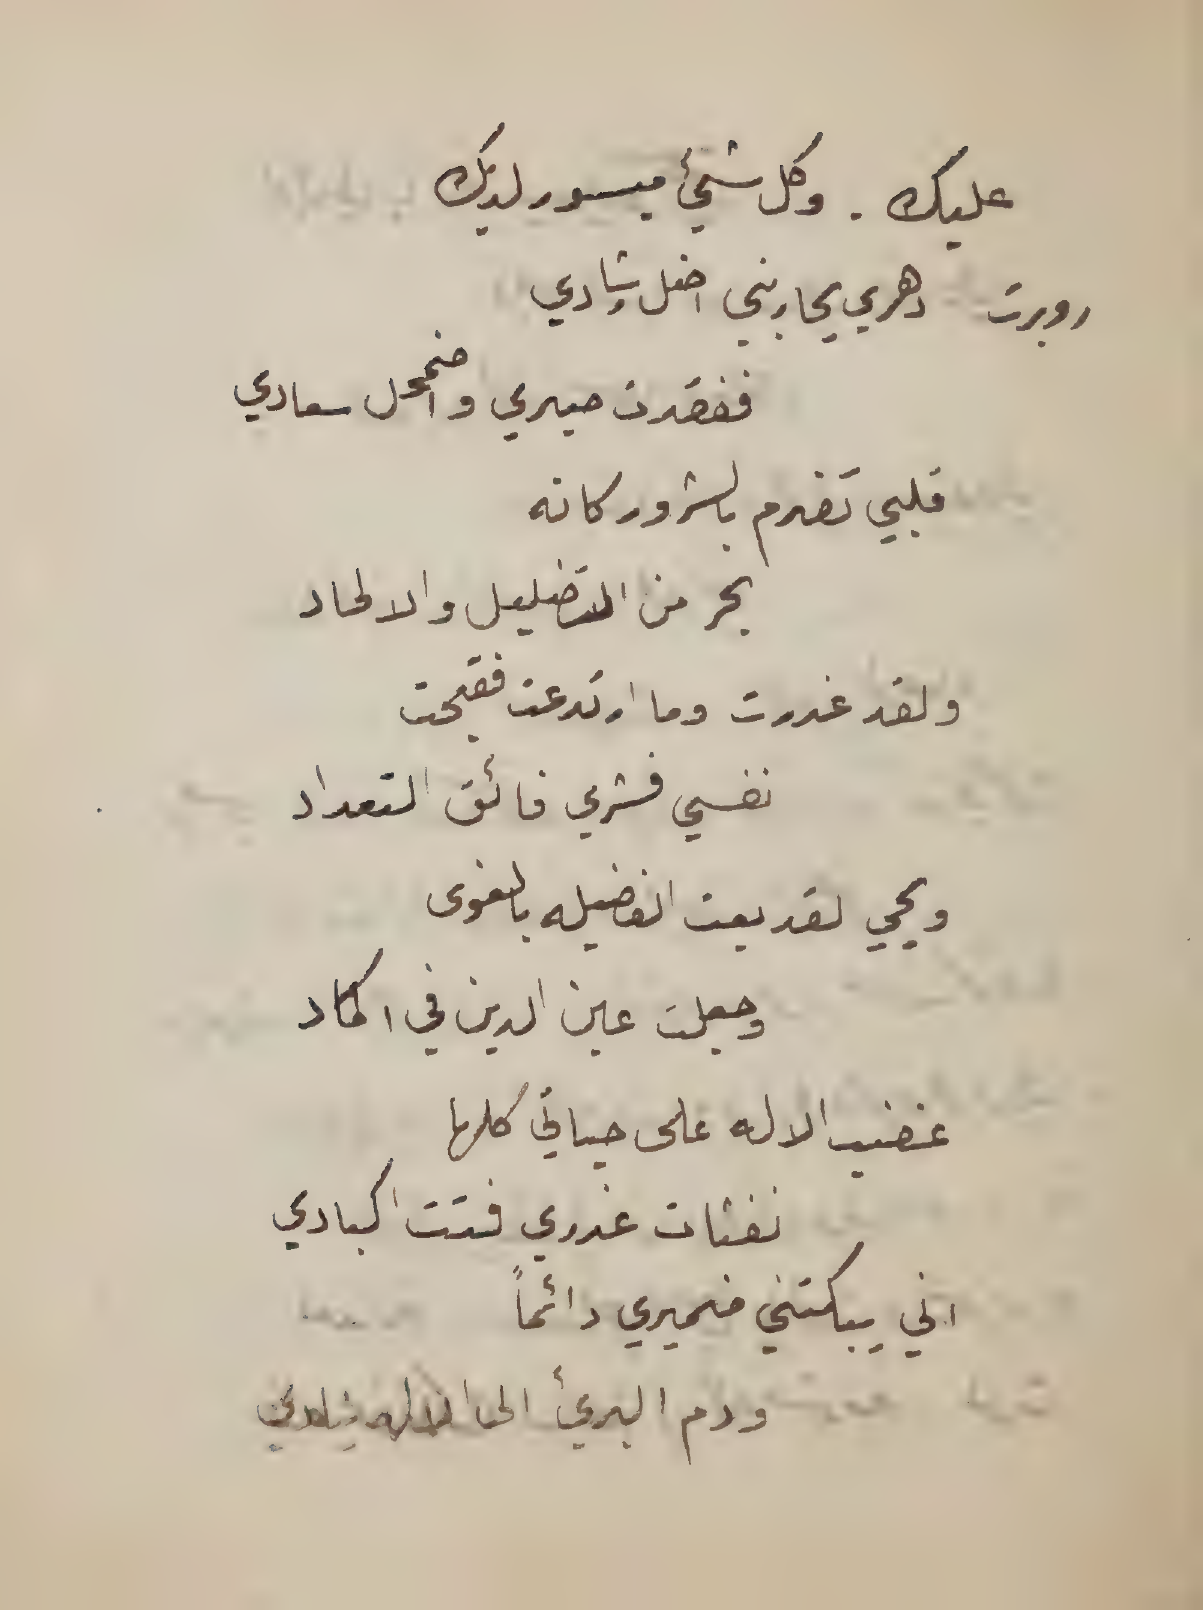 عليك . وكل شئ ميسور لديك
روبرت دهري يحاربني اضل رشادي
ففقدت صبري واضمحل سعادي
قلبي تضرم بالشرور كانه
بحر من التضليل والالحاد
ولقد غدرت وما ارتدعت فقبحت
نفسي فشري فائق التعداد
ويحي لقد بعت الفضيله بالغوى
وجعلت عين الدين في اكماد
غضب الاله على حياتي كلها
نفثات غدري فتت اكبادي
اني يبكتني ضميري دائماً
ودم البرئ الى الاله ينادي